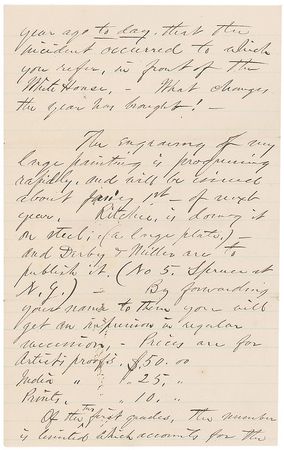 year ago to day, that the
incident occurred to which
you refer, in front of the
White House, - What changes
the year has brought! -
The Engraving of my
large painting is progressing
rapidly, and will be issued
about 1st - of next
year. Ritchie, is doing it
on steel; (a large plate,) -
and Derby & Miller are to
publish it. (No 5 Spruce st
N.Y.) - By forwarding
your name to them you will
get an impression in regular
succession, - Prices are for
Artists proofs, $50.00
India " " 25, "
Prints, " 10, "
Of the two first grades, the number
is limited which accounts for the